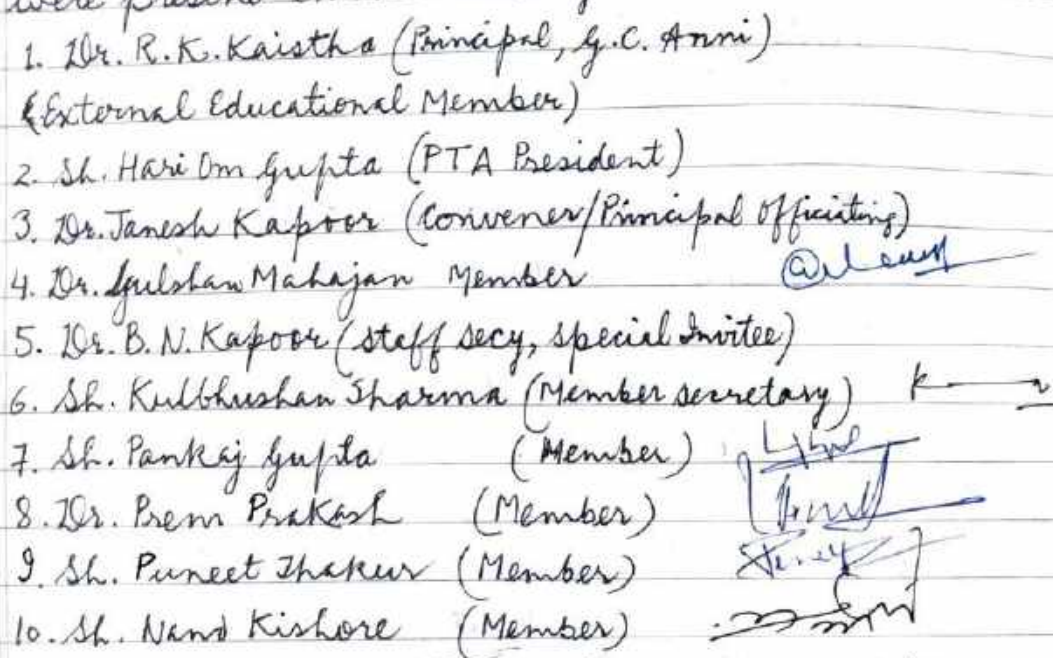 were present
1. Dr. R.K. Kaistha (Principal, G.C. Anni)
(External Educational Member)
2. Sh. Hari Om Gupta (PTA President)
3. Dr. Janesh Kapoor (Convener/Principal Officiating)
4. Dr. Gulshan Mahajan Member
5. Dr. B.N. Kapoor (Staff Secy, Special Invitee)
6. Sh. Kulbhushan Sharma (Member Secretary)
7. Sh. Pankaj Gupta (Member)
8. Dr. Prem Prakash (Member)
9. Sh. Puneet Thakur (Member)
10. Sh. Nand Kishore (Member)